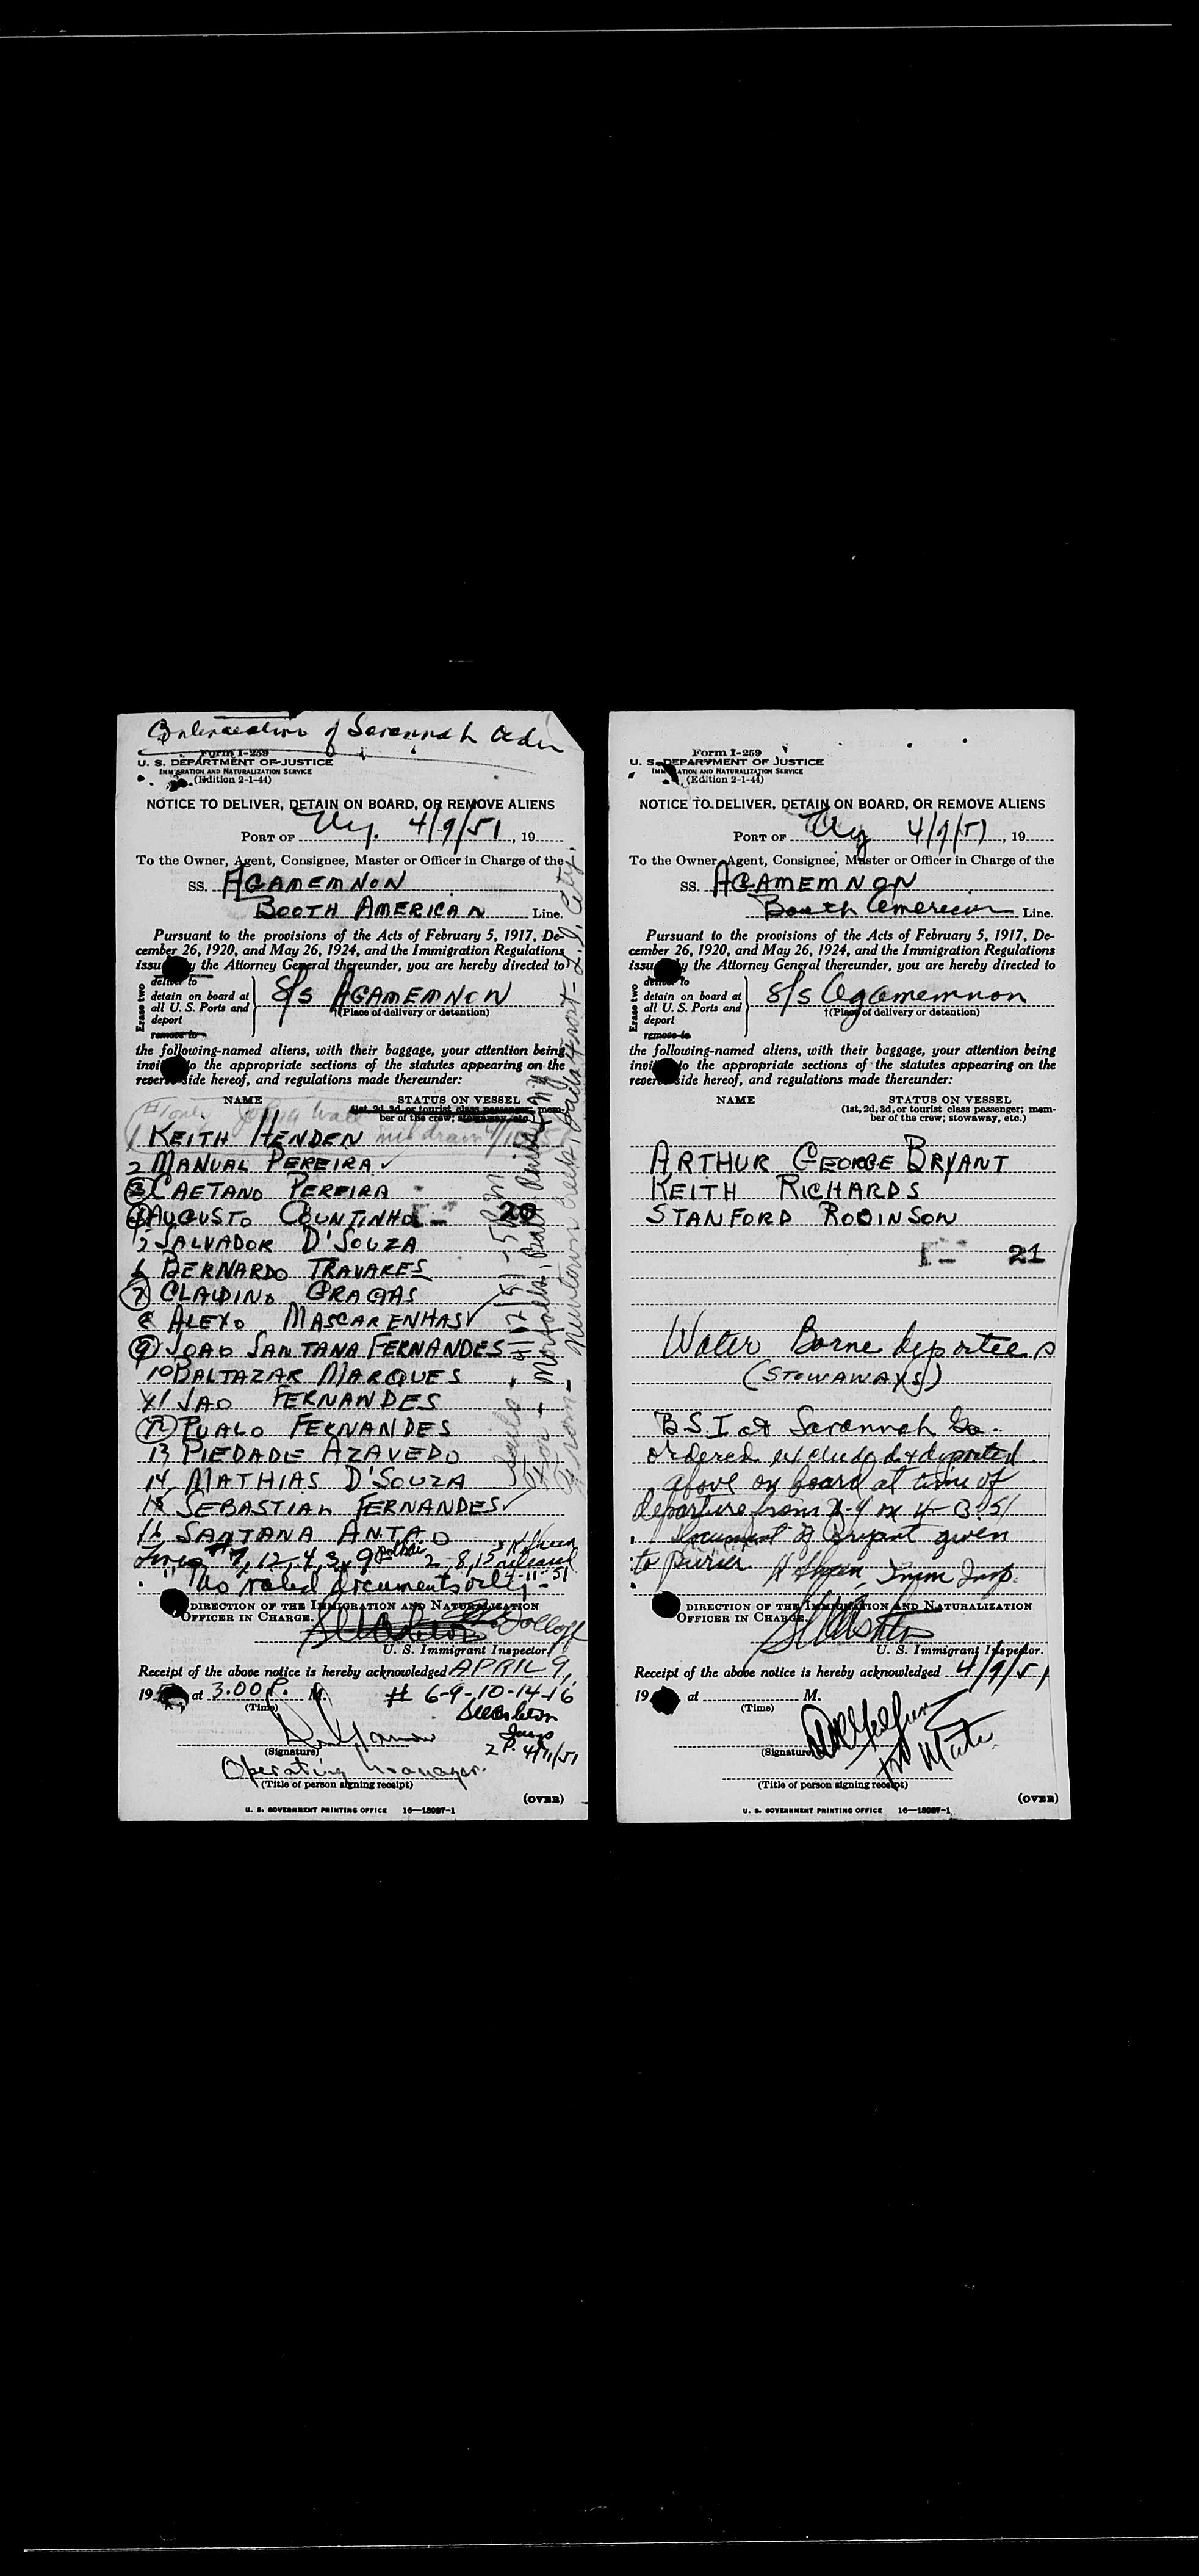 Continuation of Savannah order
Form I-259
U. S. DEPARTMENT OF JUSTICE
IMMIGRATION AND NATURALIZATION SERVICE
(Edition 2-1-44)
NOTICE TO DELIVER, DETAIN ON BOARD, OR REMOVE ALIENS
PORT OF NY. 4/9/51, 19
To the Owner, Agent, Consignee, Master or Officer in Charge of the
SS. AGAMEMNON
BOOTH AMERICAN Line.
Pursuant to the provisions of the Acts of February 5, 1917, De-
cember 26, 1920, and May 26, 1924, and the Immigration Regulations
issu y the Attorney General thereunder, you are hereby directed to
Erase two
deliver to
detain on board at
all U. S. Ports and
deport
remove to
S/S AGAMEMNON
†(Place of delivery or detention)
the following-named aliens, with their baggage, your attention being
invi o the appropriate sections of the statutes appearing on the
reverse side hereof, and regulations made thereunder:
NAME STATUS ON VESSEL
(1st, 2d, 3d, or tourist class passenger; mem-
ber of the crew; stowaway, etc.)
1 KEITH HENDEN
2 MANUAL PEREIRA ✓
3 CAETANO PEREIRA
4 AUGUSTO COUNTINHO I- 20
5 SALVADOR D'SOUZA
6 BERNARDO TRAVARES
7 CLAUDINO GRAGAS
8 ALEXO MASCARENHAS ✓
9 JOAO SANTANA FERNANDES
10 BALTAZAR MARQUES
11 JAO FERNANDES
12 PUALO FERNANDES
13 PIEDADE AZAVEDO
14 MATHIAS D'SOUZA
15 SEBASTIAN FERNANDES ✓
16 SANTANA ANTAO
7, 12, 4, 3, 9 2 8, 15 released
4-11-51
documents only
DIRECTION OF THE IMMIGRATION AND NATURALIZATION
OFFICER IN CHARGE.
U. S. Immigrant Inspector
Receipt of the above notice is hereby acknowledged APRIL 9,
19 at 3.00 P. M. # 6-9-10-14-16
(Time)
2 P. 4/11/51
(Signature)
Operating Manager.
(Title of person signing receipt)
(OVER)
U. S. GOVERNMENT PRINTING OFFICE 16—18987-1
Form I-259
U. S. DEPARTMENT OF JUSTICE
IMMIGRATION AND NATURALIZATION SERVICE
(Edition 2-1-44)
NOTICE TO DELIVER, DETAIN ON BOARD, OR REMOVE ALIENS
PORT OF NY 4/9/51, 19
To the Owner, Agent, Consignee, Master or Officer in Charge of the
SS. AGAMEMNON
Booth American Line.
Pursuant to the provisions of the Acts of February 5, 1917, De-
cember 26, 1920, and May 26, 1924, and the Immigration Regulations
issu y the Attorney General thereunder, you are hereby directed to
Erase two
deliver to
detain on board at
all U. S. Ports and
deport
remove to
S/S Agamemnon
†(Place of delivery or detention)
the following-named aliens, with their baggage, your attention being
invi o the appropriate sections of the statutes appearing on the
reverse side hereof, and regulations made thereunder:
NAME STATUS ON VESSEL
(1st, 2d, 3d, or tourist class passenger; mem-
ber of the crew; stowaway, etc.)
ARTHUR GEORGE BRYANT
KEITH RICHARDS
STANFORD ROBINSON
I- 21
Water Borne deportees
(STOWAWAYS)
BSI at Savannah Ga.
ordered excluded & deported.
above on board at time of
departure from N.Y on 4-13-51
Document of Bryant given
to purser Imm Insp.
DIRECTION OF THE IMMIGRATION AND NATURALIZATION
OFFICER IN CHARGE.
U. S. Immigrant Inspector.
Receipt of the above notice is hereby acknowledged 4/9/51
19 at M.
(Time)
(Signature)
Mate
(Title of person signing receipt)
(OVER)
U. S. GOVERNMENT PRINTING OFFICE 16—18987-1